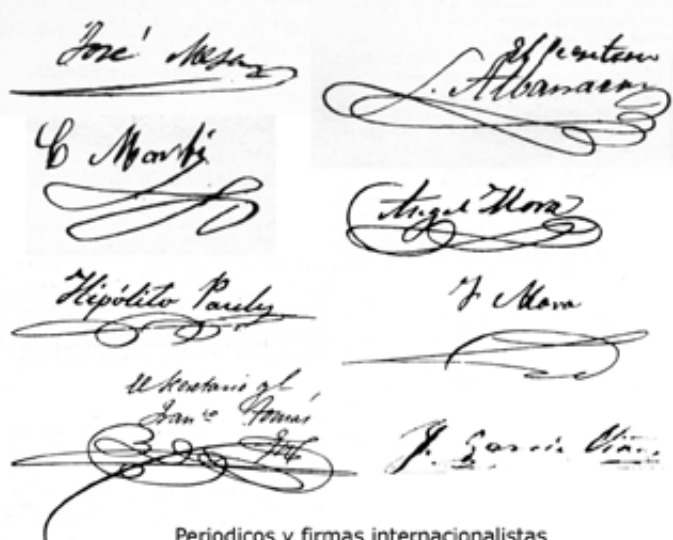 José Mesa
El Secretario
S. Albarracín
C Martí
Angel Mora
Hipólito Pauly
F Mora
el secretario gl
Franco Tomás
J. García Viñas
Periodicos y firmas internacionalistas